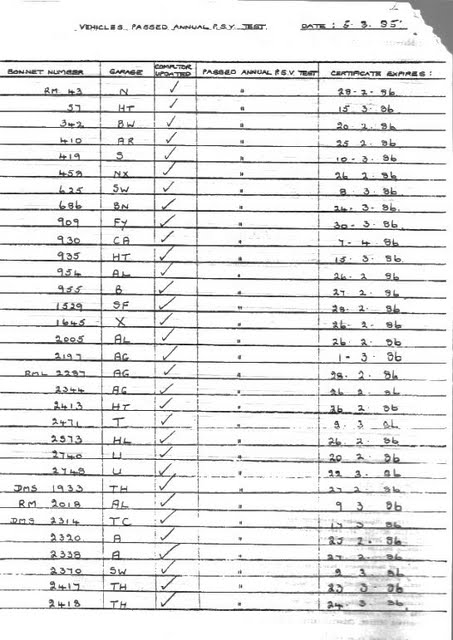 VEHICLES PASSED ANNUAL P.S.V. TEST. DATE : 5.3.85
BONNET NUMBER GARAGE COMPUTOR UPDATED PASSED ANNUAL P.S.V TEST CERTIFICATE EXPIRES :
RM 43 N ✓ " 28.2.86
57 HT ✓ " 15.3.86
342 BW ✓ " 20.2.86
410 AR ✓ " 25.2.86
419 S ✓ " 10.3.86
459 NX ✓ " 26.2.86
625 SW ✓ " 8.3.86
686 BN ✓ " 24.3.86
909 FY ✓ " 30.3.86
930 CA ✓ " 7.4.86
935 HT ✓ " 15.3.86
954 AL ✓ " 26.2.86
955 B ✓ " 27.2.86
1529 SF ✓ " 28.2.86
1645 X ✓ " 26.2.86
2005 AL ✓ " 26.2.86
2197 AG ✓ " 1.3.86
RML 2287 AG ✓ " 28.2.86
2344 AG ✓ " 26.2.86
2413 HT ✓ " 26.2.86
2471 T ✓ " 3.86
2573 HL ✓ " 26.2.86
2740 U ✓ " 20.2.86
2748 U ✓ " 22.3.86
DMS 1933 TH ✓ " 27.2.86
RM 2018 AL ✓ " 9.3.86
DMS 2314 TC ✓ " 3.86
2320 A ✓ " 25.2.86
2338 A ✓ " 27.2.86
2370 SW ✓ " 9.3.86
2417 TH ✓ " 23.3.86
2418 TH ✓ " 24.3.86